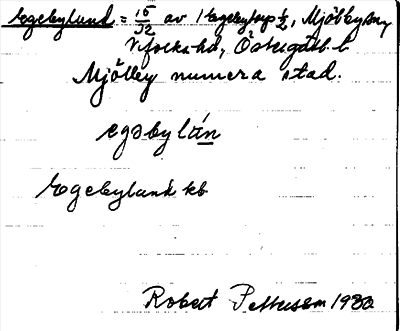 Egebyland = 15/32 av 1 Egebytorp 1/2, Mjölby sn,
Vifolka hd, Östergötl. l.
Mjölby numera stad.
egəbylán
Egebyland kb
Robert Pettersson 1930